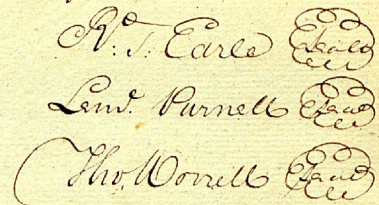 Rd. T. Earle Seal
Lemd. Purnell Seal
Tho. Worrell Seal